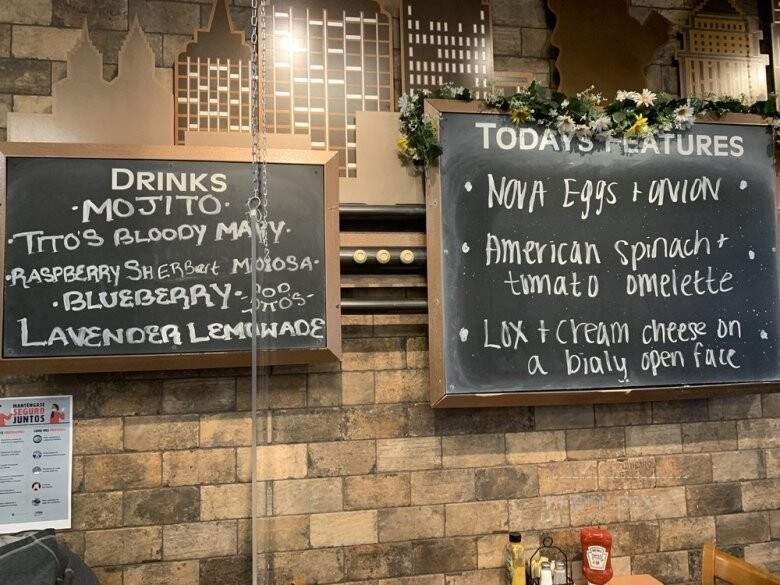 DRINKS
·MOJITO·
·TITO'S BLOODY MARY·
·RASPBERRY SHERBert MIMOSA·
·BLUEBERRY·
TITO'S-
LAVENDER LEMONADE
TODAYS FEATURES
• NOVA Eggs + ONION •
• American spinach +
tomato omelette •
• Lox + cream cheese on
a bialy open face •
MANTÉNGASE
SEGURO
JUNTOS
HEINZ